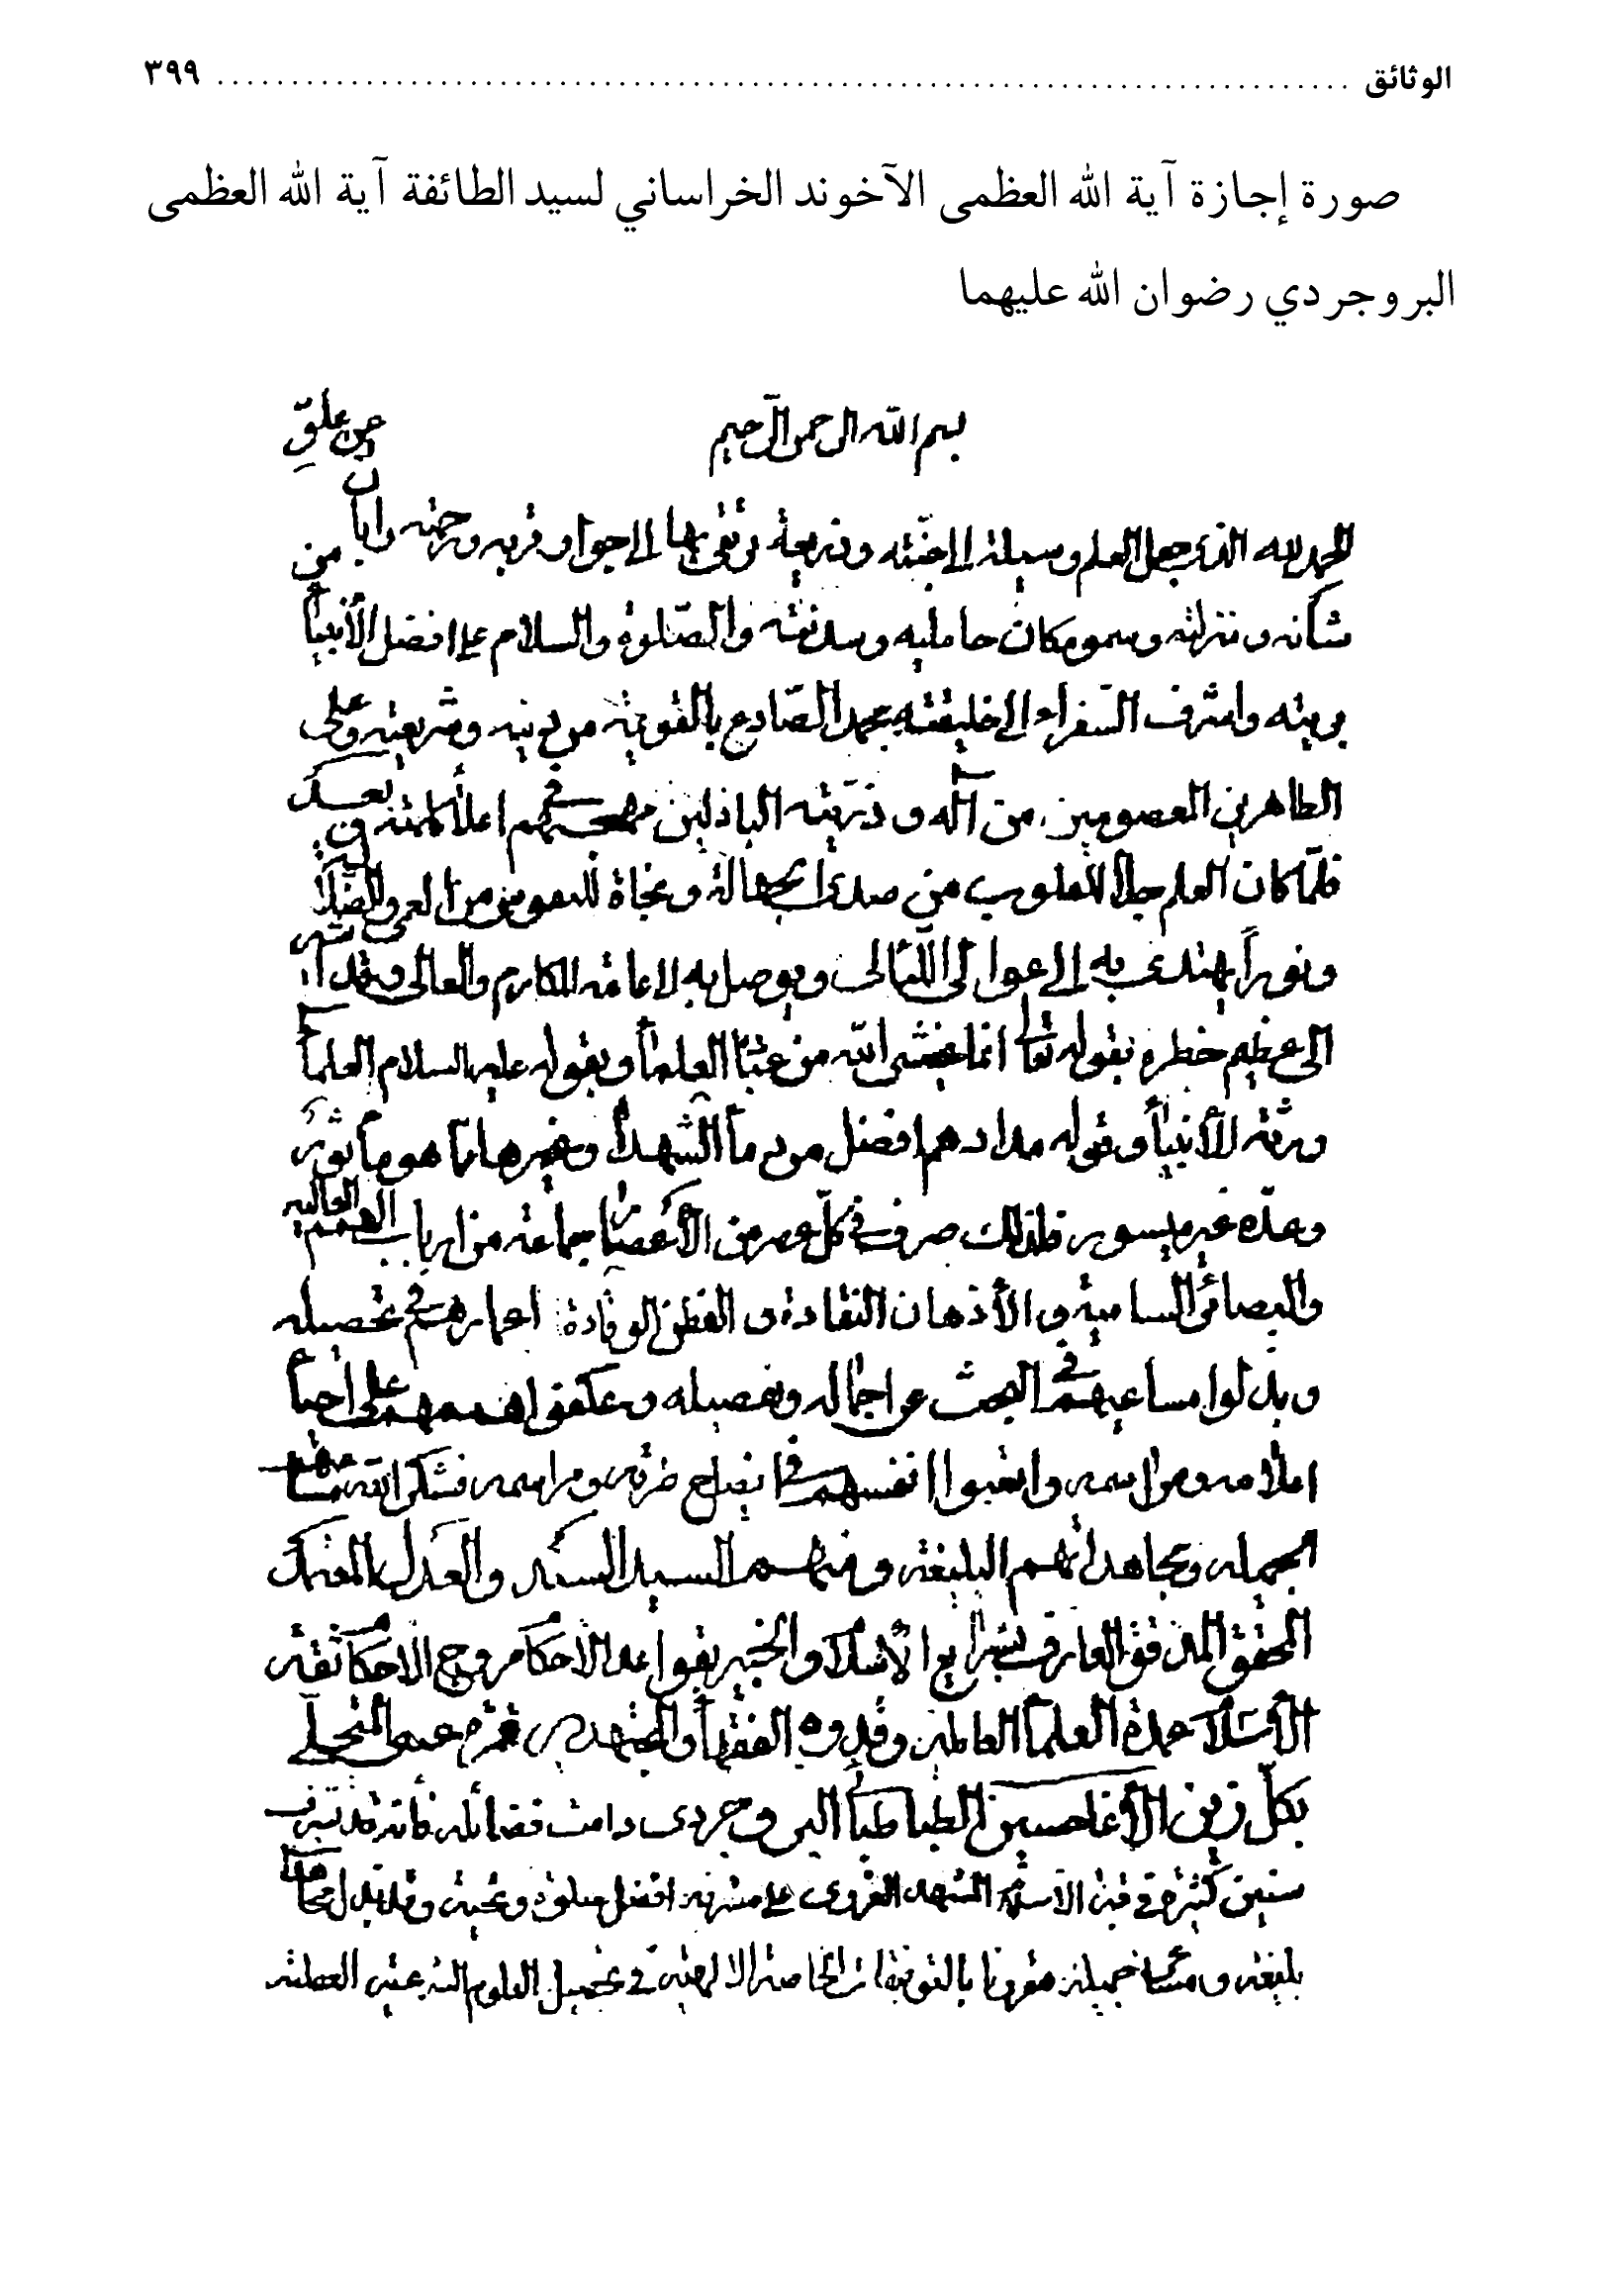 الوثائق ................ ٣٩٩
صورة إجازة آية الله العظمى الآخوند الخراساني لسيد الطائفة آية الله العظمى
البروجردي رضوان الله عليهما
بسم الله الرحمن الرحيم
الحمد لله الذي جعل العلم وسيلة الى جنته وذريعة يرتقى بها الى جوار قربه ورحمته وابان عن علوّ
شأنه ومنزلته وسمو مكان حامليه وسدنته والصّلوة والسلام على افضل الأنبيآء من
بريته واشرف السفراء الى خليقته محمد الصّادع بالقويم من دينه وشريعته وعلى
الطاهرين المعصومين من آله وذرّيته الباذلين مهجهم في اعلاء كلمته وبعد
فلمّا كان العلم جلاء للقلوب من صداء الجهالة ونجاة للنفوس من العمى والضلالة
ونوراً يهتدى به الى عوالى اللئالى ويوصل به لاعاظم المكارم والمعالى وقد اشير
الى عظيم خطره بقوله تعالى انما يخشى الله من عباده العلمآء وبقوله عليه السلام العلمآء
ورثة الأنبيآء وقوله مدادهم افضل من دمآء الشهدآء وغيرها مما هو مأثور
وعدّه غير ميسور فلذلك صرف في كلّ عصر من الأعصار جماعة من ارباب الهمم العالية
والبصائر السامية والأذهان النقادة والفطن الوقادة اعمارهم في تحصيله
وبذلوا مساعيهم في البحث عن اجماله وتفصيله وعكفوا هممهم على احيآء
اعلامه ومراسمه واتعبوا انفسهم في ايضاح طرقه ومراسمه فشكر الله مساعيهم
الجميلة ومجاهداتهم البليغة ومنهم السيد السند والعدل المعتمد
المحقق المدقق العارف بشرايع الأسلام والخبير بقواعد الاحكام مروج الاحكام ثقة
الأسلام عمدة العلمآء العاملين وقدوة الفقهآء والمجتهدين المتحلّى
بكلّ زين الأغا حسين الطباطبآئى البروجردى دامت فضائله فانه قد تشرف
سنين كثيرة في المشهد الغروى على مشرفه افضل صلوة وتحية وقد بذل
بليغة جميلة مقرونا بالتوفيقات الخاصة الالهية في تحصيل العلوم الشرعية